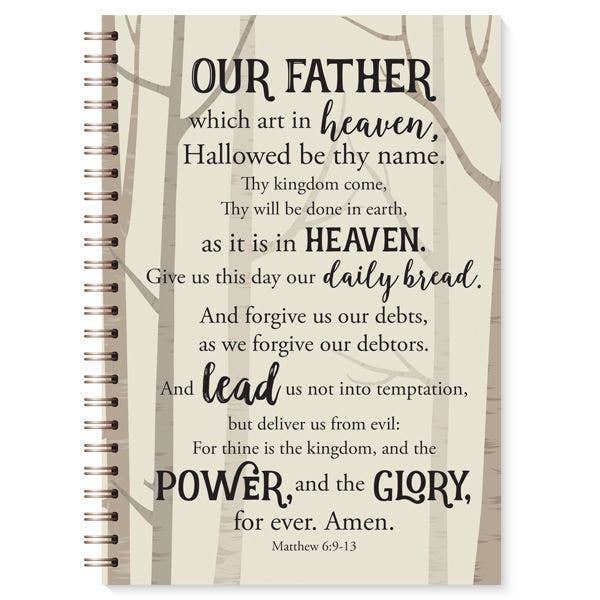 OUR FATHER
which art in heaven,
Hallowed be thy name.
Thy kingdom come,
Thy will be done in earth,
as it is in HEAVEN.
Give us this day our daily bread.
And forgive us our debts,
as we forgive our debtors.
And lead us not into temptation,
but deliver us from evil:
For thine is the kingdom, and the
POWER, and the GLORY,
for ever. Amen.
Matthew 6:9-13